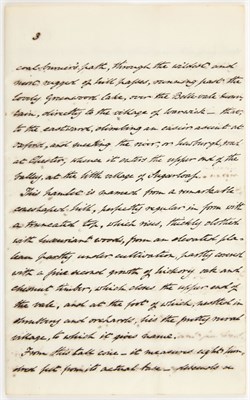 3
coal-burner's path, through the wildest and
most rugged of hill passes, running past the
lovely Greenwood lake, over the Bellvale moun-
tain, directly to the village of Warwick — that,
to the eastward, climbing an easier ascent at
and meeting the river, or Newburgh, road
at Chester, whence it enters the upper end of the
valley, at the little village of Sugarloaf.
This hamlet is named from a remarkable
coneshaped hill, perfectly regular in form with
a truncated top, which rises, thickly clothed
with luxuriant woods, from an elevated pla-
teau partly under cultivation, partly covered
with a fine second growth of hickory, oak and
chestnut timber, which closes the upper end of
the vale, and at the foot of which, nestled in
shrubbery and orchards, lies the pretty rural
village, to which it gives name.
From this tall cone — it measures eight hun-
dred feet from its actual base — descends in